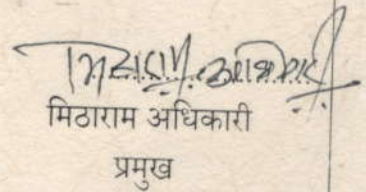 मिठाराम अधिकारी
मिठाराम अधिकारी
प्रमुख